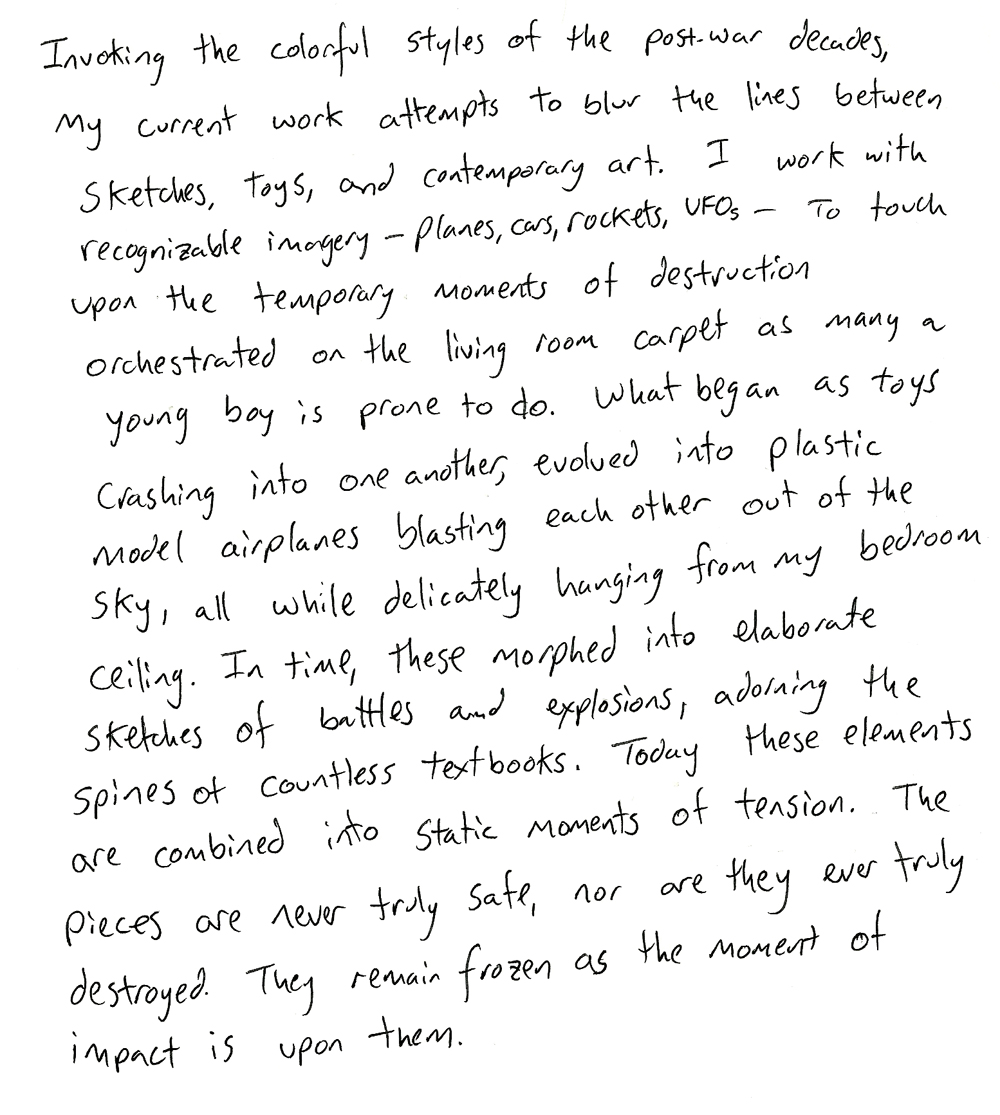 Invoking the colorful styles of the post-war decades,
My current work attempts to blur the lines between
sketches, toys, and contemporary art. I work with
recognizable imagery – planes, cars, rockets, UFOs – To touch
upon the temporary moments of destruction
orchestrated on the living room carpet as many a
young boy is prone to do. What began as toys
crashing into one another, evolved into plastic
model airplanes blasting each other out of the
sky, all while delicately hanging from my bedroom
ceiling. In time, these morphed into elaborate
sketches of battles and explosions, adorning the
spines of countless textbooks. Today these elements
are combined into static moments of tension. The
pieces are never truly safe, nor are they ever truly
destroyed. They remain frozen as the moment of
impact is upon them.